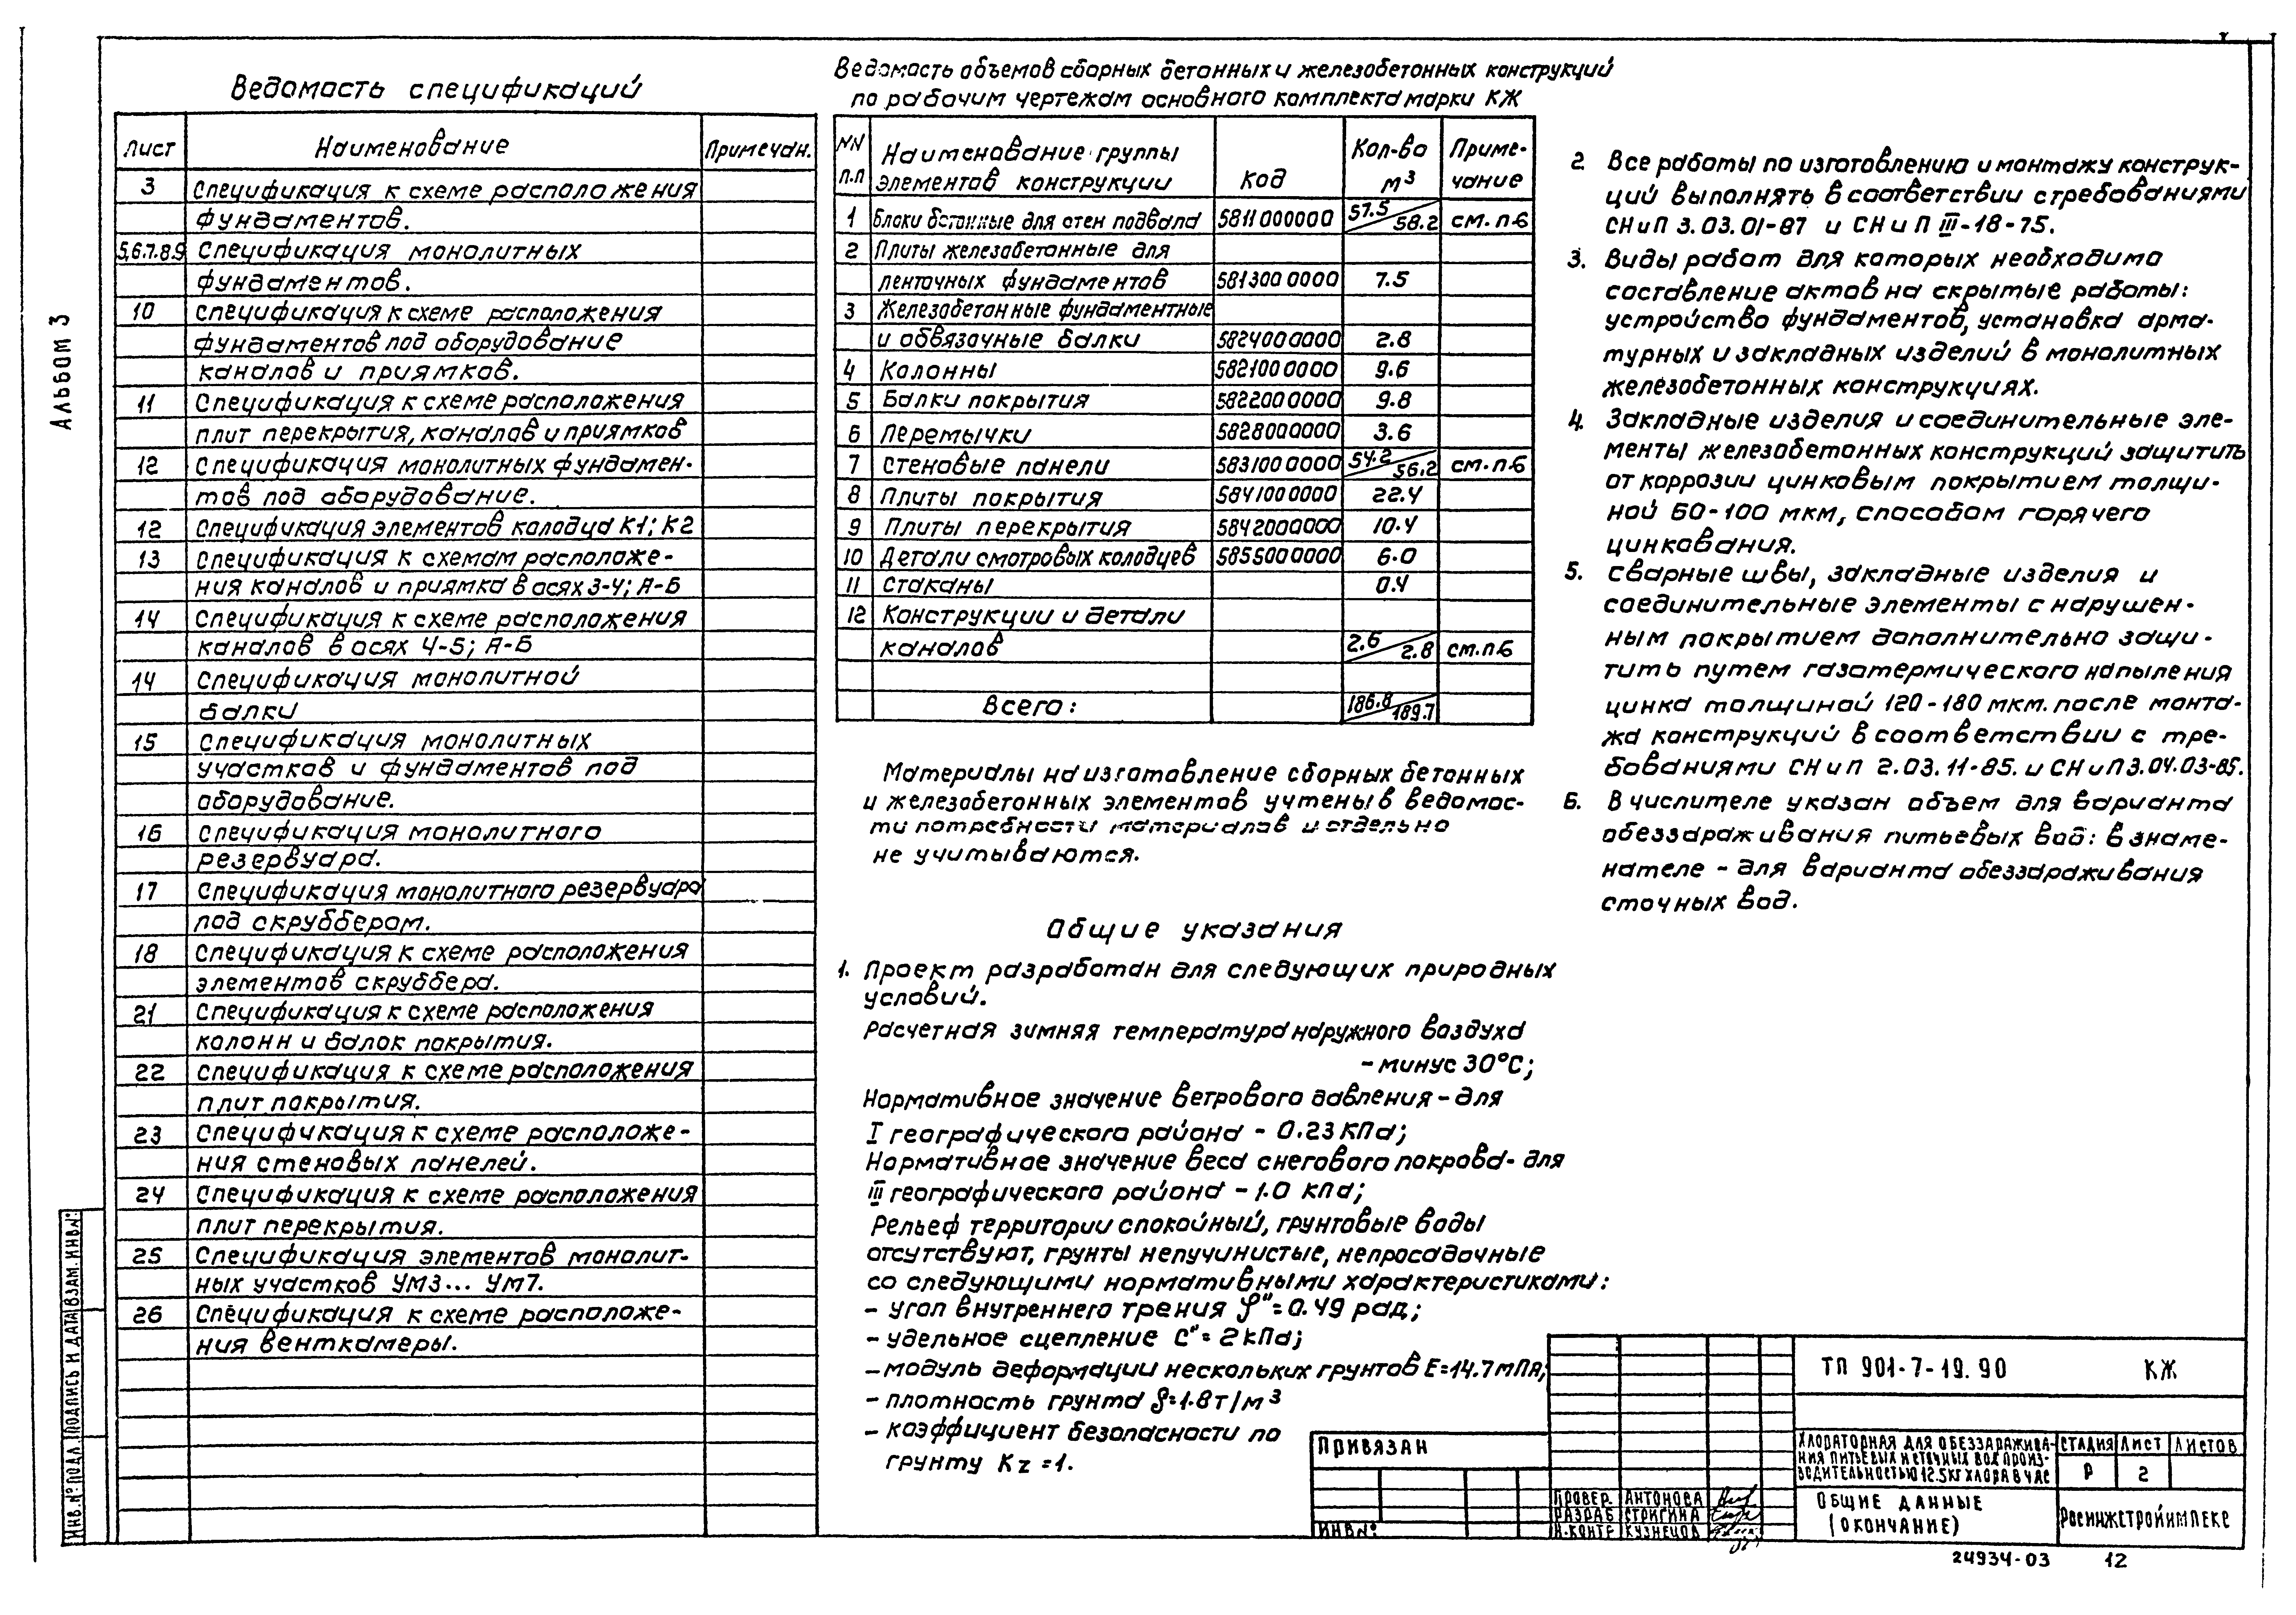 Альбом 3
Ведомость спецификаций
Лист Наименование Примечан.
3 Спецификация к схеме расположения
фундаментов.
5,6.7.8.9 Спецификация монолитных
фундаментов.
10 Спецификация к схеме расположения
фундаментов под оборудование
каналов и приямков.
11 Спецификация к схеме расположения
плит перекрытия, каналов и приямков
12 Спецификация монолитных фундамен-
тов под оборудование.
12 Спецификация элементов колодца К1; К2
13 Спецификация к схемам расположе-
ния каналов и приямка в осях 3-4; А-Б
14 Спецификация к схеме расположения
каналов в осях 4-5; А-Б
14 Спецификация монолитной
балки
15 Спецификация монолитных
участков и фундаментов под
оборудование.
16 Спецификация монолитного
резервуара.
17 Спецификация монолитного резервуара
под скруббером.
18 Спецификация к схеме расположения
элементов скруббера.
21 Спецификация к схеме расположения
колонн и балок покрытия.
22 Спецификация к схеме расположения
плит покрытия.
23 Спецификация к схеме расположе-
ния стеновых панелей.
24 Спецификация к схеме расположения
плит перекрытия.
25 Спецификация элементов монолит-
ных участков УМ3... УМ7.
26 Спецификация к схеме расположе-
ния венткамеры.
Ведомость объемов сборных бетонных и железобетонных конструкций
по рабочим чертежам основного комплекта марки КЖ
NN п.п Наименование группы элементов конструкции Код Кол-во м³ Приме-чание
1 Блоки бетонные для стен подвала 5811000000 57.5/58.2 см. п.6
2 Плиты железобетонные для
ленточных фундаментов 5813000000 7.5
3 Железобетонные фундаментные
и обвязочные балки 5824000000 2.8
4 Колонны 5821000000 9.6
5 Балки покрытия 5822000000 9.8
6 Перемычки 5828000000 3.6
7 Стеновые панели 5831000000 54.2/56.2 см. п.6
8 Плиты покрытия 5841000000 22.4
9 Плиты перекрытия 5842000000 10.4
10 Детали смотровых колодцев 5855000000 6.0
11 Стаканы 0.4
12 Конструкции и детали
каналов 2.6/2.8 см.п.6
Всего: 186.8/189.7
Материалы на изготовление сборных бетонных
и железобетонных элементов учтены в ведомос-
ти потребности материалов и отдельно
не учитываются.
Общие указания
1. Проект разработан для следующих природных
условий.
Расчетная зимняя температура наружного воздуха
- минус 30°С;
Нормативное значение ветрового давления - для
I географического района - 0.23 кПа;
Нормативное значение веса снегового покрова - для
III географического района - 1.0 кПа;
Рельеф территории спокойный, грунтовые воды
отсутствуют, грунты непучинистые, непросадочные
со следующими нормативными характеристиками:
- угол внутреннего трения φⁿ=0.49 рад;
- удельное сцепление Сⁿ=2кПа;
- модуль деформации нескольких грунтов Е=14.7мПа;
- плотность грунта ρ=1.8т/м³
- коэффициент безопасности по
грунту Kz=1.
2. Все работы по изготовлению и монтажу конструк-
ций выполнять в соответствии с требованиями
СНиП 3.03.01-87 и СНиП III-18-75.
3. Виды работ для которых необходимо
составление актов на скрытые работы:
устройство фундаментов, установка арма-
турных и закладных изделий в монолитных
железобетонных конструкциях.
4. Закладные изделия и соединительные эле-
менты железобетонных конструкций защитить
от коррозии цинковым покрытием толщи-
ной 60-100 мкм, способом горячего
цинкования.
5. Сварные швы, закладные изделия и
соединительные элементы с нарушен-
ным покрытием дополнительно защи-
тить путем газотермического напыления
цинка толщиной 120-180 мкм. после монта-
жа конструкций в соответствии с тре-
бованиями СНиП 2.03.11-85. и СНиП3.04.03-85.
6. В числителе указан объем для варианта
обеззараживания питьевых вод: в знаме-
нателе - для варианта обеззараживания
сточных вод.
ПРИВЯЗАН
ИНВ.№:
ПРОВЕР. АНТОНОВА
РАЗРАБ СТРИГИНА
Н.КОНТР КУЗНЕЦОВ
ТП 901-7-19.90 КЖ
ХЛОРАТОРНАЯ ДЛЯ ОБЕЗЗАРАЖИВА-
НИЯ ПИТЬЕВЫХ И СТОЧНЫХ ВОД ПРОИЗ-
ВОДИТЕЛЬНОСТЬЮ 12.5КГ ХЛОРА В ЧАС
СТАДИЯ ЛИСТ ЛИСТОВ
Р 2
ОБЩИЕ ДАННЫЕ
(ОКОНЧАНИЕ)
РОСИНЖСТРОЙИМПЕКС
ИНВ.№ ПОДЛ. ПОДПИСЬ И ДАТА ВЗАМ. ИНВ.№:
24934-03 12